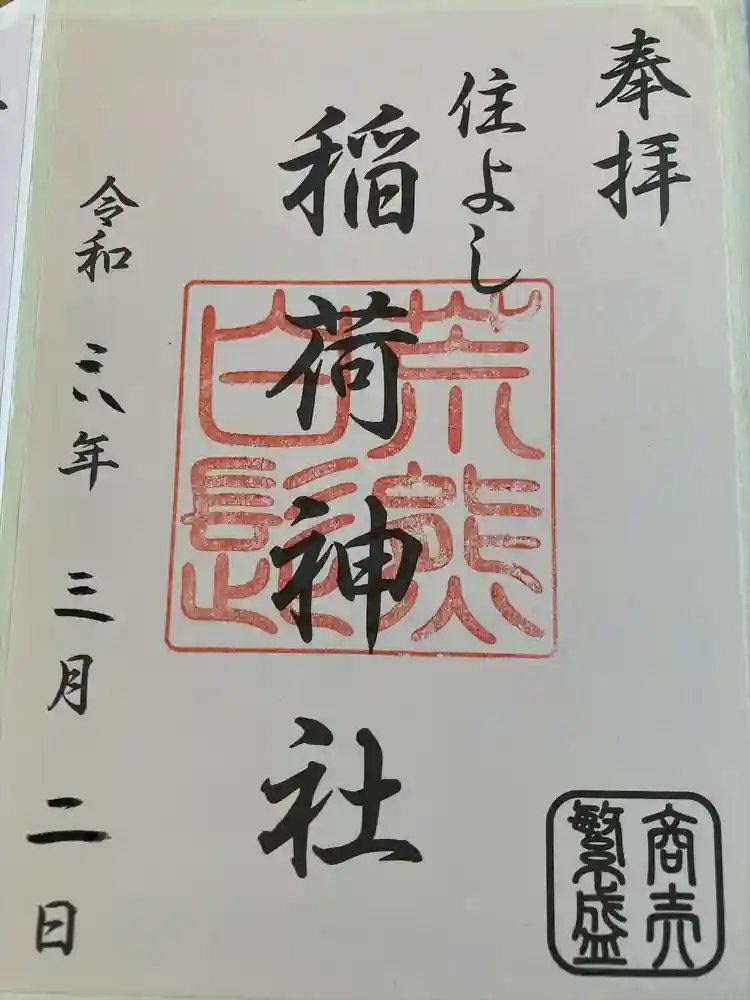 奉拝
住よし
稲荷神社
荒熊
白髭
令和 六年 三月 二日
商売
繁盛